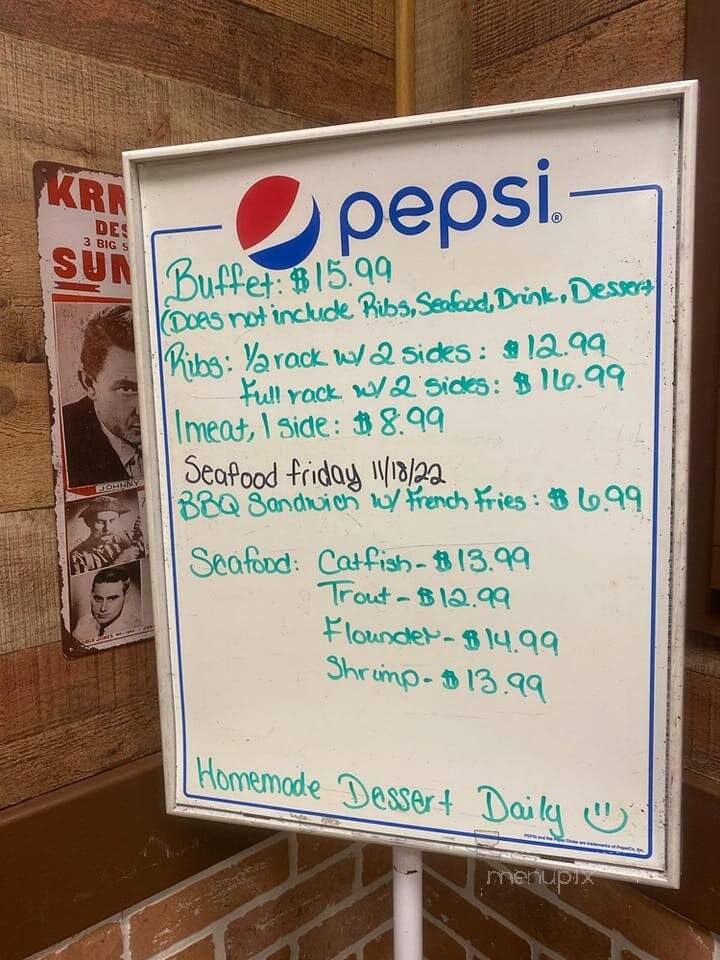 KRN
DES
3 BIG S
SUN
JOHNNY
pepsi®
Buffet: $15.99
(Does not include Ribs, Seafood, Drink, Dessert
Ribs: 1/2 rack w/ 2 sides: $12.99
Full rack w/ 2 sides: $16.99
1 meat, 1 side: $8.99
Seafood friday 11/18/22
BBQ Sandwich w/ French Fries: $6.99
Seafood: Catfish - $13.99
Trout - $12.99
Flounder - $14.99
Shrimp - $13.99
Homemade Dessert Daily
PEPSI and the Pepsi Globe are trademarks of PepsiCo, Inc.
menupix